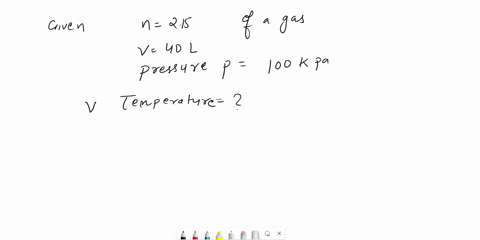 Given n = 2.15 of a gas
V = 40 L
pressure p = 100 K pa
V Temperature = ?